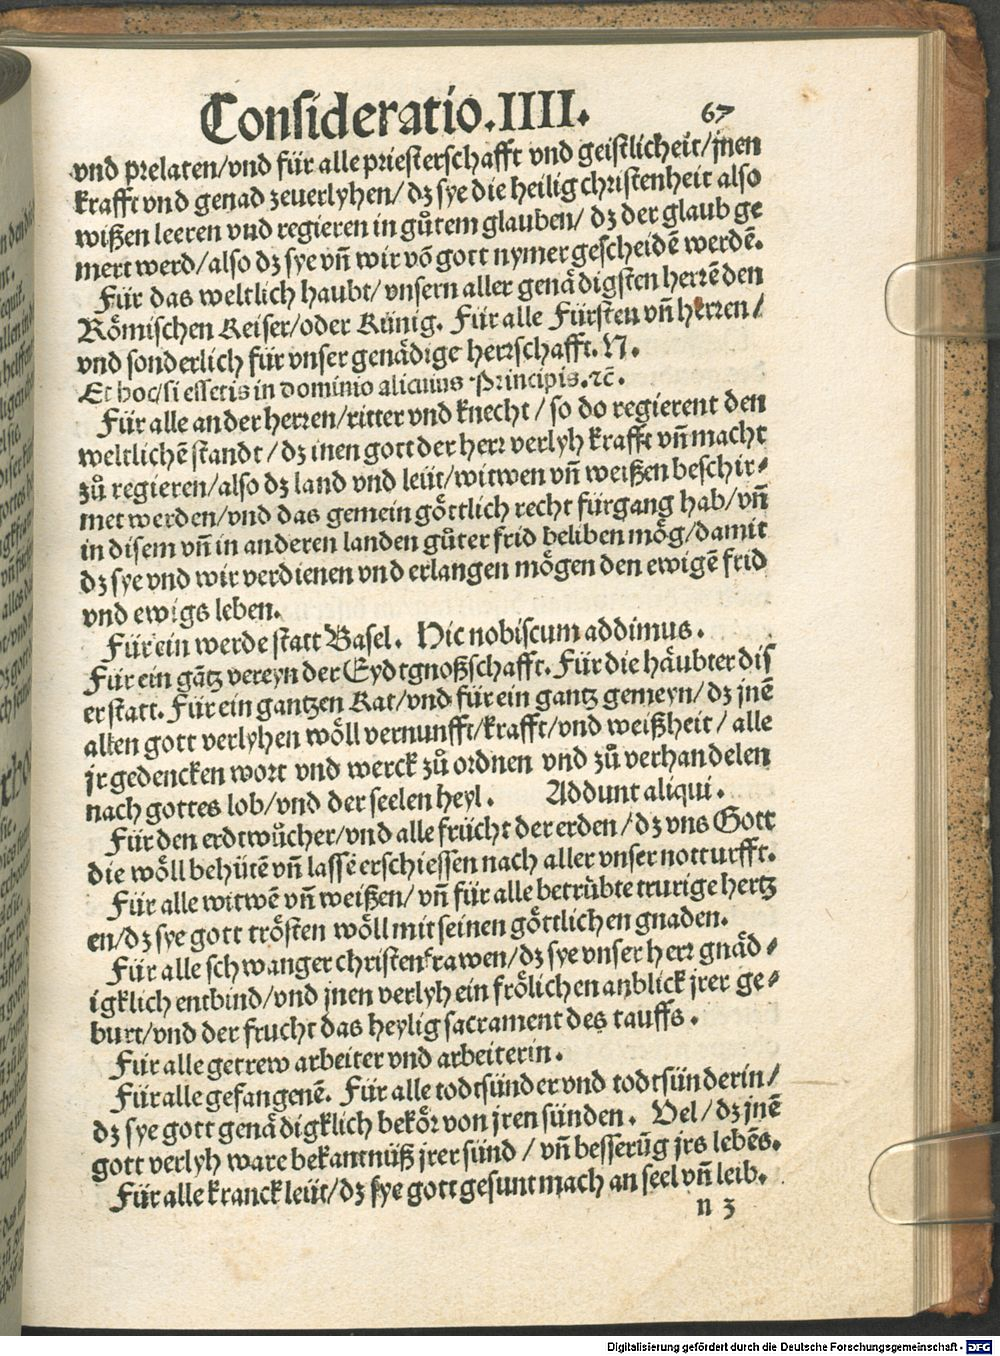 Consideratio.IIII. 67
vnd prelaten/vnd für alle priesterschafft vnd geistlicheit/jnen
krafft vnd genad zeuerlyhen/ dz sye die heilig christenheit also
wißen leeren vnd regieren in gůtem glauben/ dz der glaub ge
mert werd/also dz sye vñ wir võ gott nymer gescheidē werdē.
Für das weltlich haubt/vnsern aller genädigsten herrē den
Römischen Keiser/oder Künig. Für alle Fürsten vñ herren/
vnd sonderlich für vnser genädige herrschafft. N.
Et hoc/si essetis in dominio alicuius Principis.⁊c̄.
Für alle ander herren/ritter vnd knecht/so do regierent den
weltlichē standt/dz inen gott der herr verlyh krafft vñ macht
zů regieren/also dz land vnd leüt/witwen vñ weißen beschir⸗
met werden/vnd das gemein göttlich recht fürgang hab/vñ
in disem vñ in anderen landen gůter frid beliben mög/damit
dz sye vnd wir verdienen vnd erlangen mögen den ewigē frid
vnd ewigs leben.
Für ein werde statt Basel. Hic nobiscum addimus.
Für ein gātz vereyn der Eydtgnoßschafft. Für die häubter dis
er statt. Für ein gantzen Rat/vnd für ein gantz gemeyn/dz jnē
allen gott verlyhen wöll vernunfft/krafft/vnd weißheit/ alle
jr gedencken wort vnd werck zů ordnen vnd zů verhandelen
nach gottes lob/vnd der seelen heyl. Addunt aliqui.
Für den erdtwůcher/vnd alle frücht der erden/dz vns Gott
die wöll behütē vñ lassē erschiessen nach aller vnser notturfft.
Für alle witwē vñ weißen/ vñ für alle betrübte trurige hertz
en/dz sye gott trösten wöll mit seinen göttlichen gnaden.
Für alle schwanger christen frawen/dz sye vnser herr gnäd⸗
igklich entbind/vnd jnen verlyh ein frölichen anblick jrer ge⸗
burt/vnd der frucht das heylig sacrament des tauffs.
Für alle getrew arbeiter vnd arbeiterin.
Für alle gefangenē. Für alle todtsünder vnd todtsünderin/
dz sye gott genädigklich bekör von jren sünden. Vel/dz jnē
gott verlyh ware bekantnüß jrer sünd/ vñ besserūg jrs lebēs.
Für alle kranck leüt/dz sye gott gesunt mach an seel vñ leib.
n 3
Digitalisierung gefördert durch die Deutsche Forschungsgemeinschaft - DFG